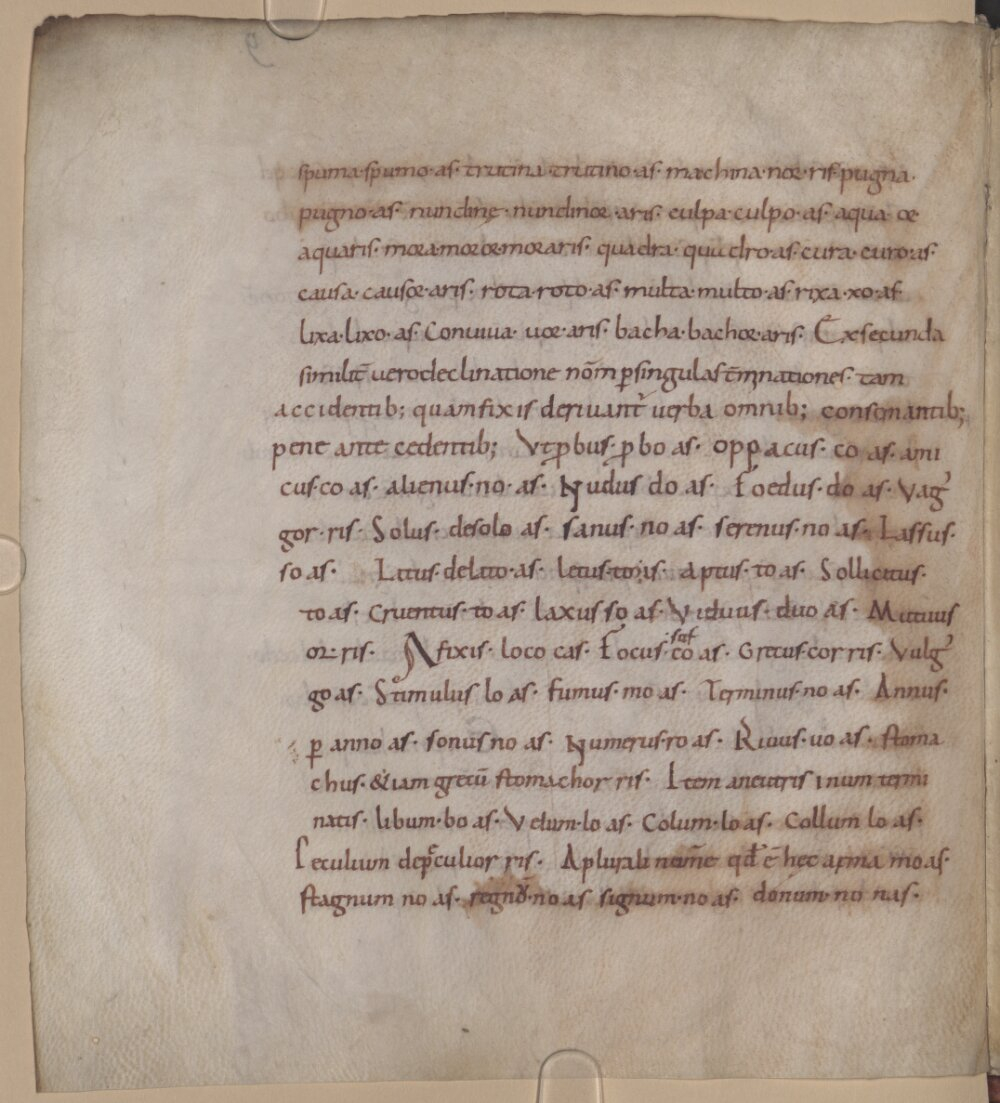 spuma·spumo·as· trutina·trutino·as· machina·nor·ris pugna·
pugno·as· nundinę·nundinor·aris· culpa·culpo·as· aqua·or
aquaris· mora·moror·moraris· quadra·quadro·as· cura·curo·as·
causa·causor·aris· rota·roto·as· multa·multo·as rixa·xo·as
lixa·lixo·as· Conuiua·uor·aris· bacha·bachor·aris· Exsecunda
similit̄ uerodeclinatione nōm ꝑsingulas t̄mnationes· tam
accidentib; quamfixis deriuant᷒ uerba omnib; consonantib;
pene ante cedentib; Vt ꝓbus·ꝓbo as· oppacus·co as·ami
cus·co as· alienus·no·as· Nudus do as· Foedus·do as· Vag᷒
gor·ris· Solus·desolo as· sanus·no as· serenus·no as· Lassus·
so as· Latus delato·as· letus·toris· aptus·to as· Sollicitus·
to as· cruentus·to as· laxus so as· Viduus·duo as· Mutuus
or·ris· Afixis· loco cas· Focus·co as· Grecus·cor ris· Vulg᷒
go as· Stimulus lo as· fumus·mo as· Terminus·no as· Annus·
ꝑ anno as· sonus no as· Numerus·ro as· Riuus·uo as· stoma
chus·&iam grecū stomachor ris· Item aneutris inum termi
natis· libum·bo as· Velum·lo as· Colum·lo as· Collum lo as·
Peculium dep̄culior ris· Aplurali nomine qd̄ ē hec arma mo as·
stagnum no as· no as signum·no as· donum·no nas·